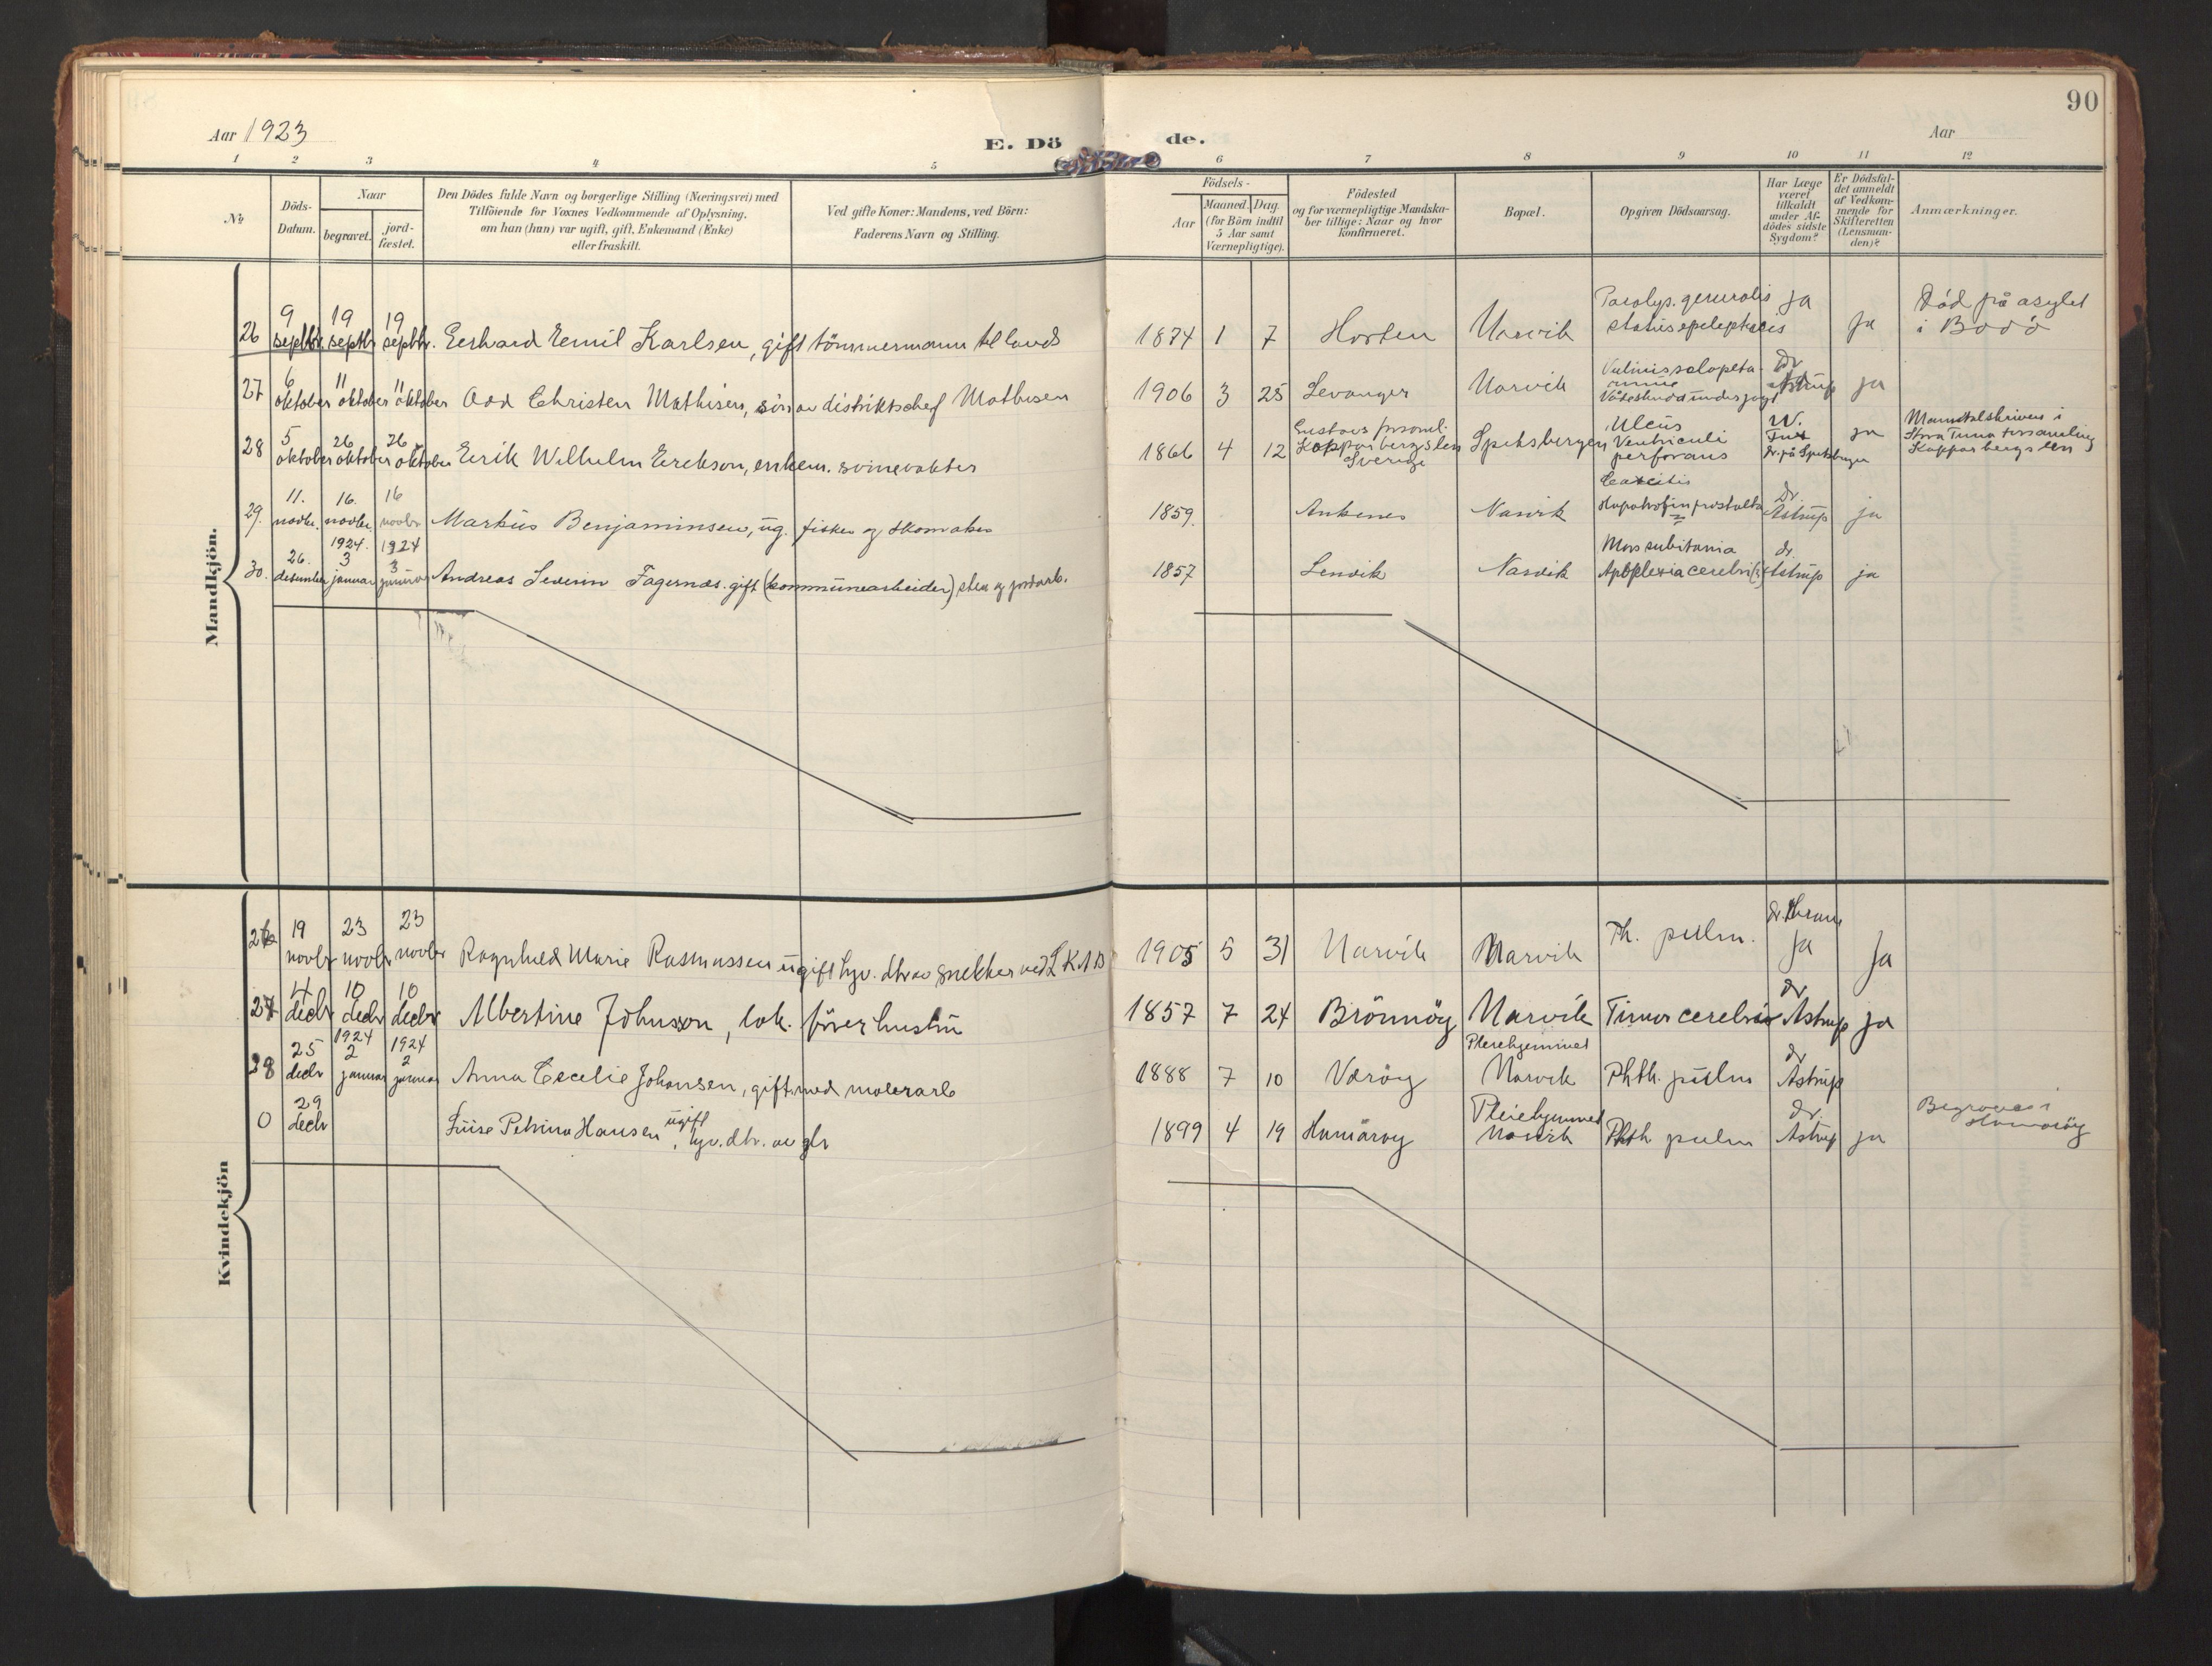 90
Aar 1923
E. Dö
de.
Aar
1 2 3 4 5 6 7 8 9 10 11 12
No
Döds-
Datum.
Naar
begravet.
jord-
fæstet.
Den Dödes fulde Navn og borgerlige Stilling (Næringsvei) med
Tilföiende for Voxnes Vedkommende af Oplysning,
om han (hun) var ugift, gift, Enkemand (Enke)
eller fraskilt.
Ved gifte Koner: Mandens, ved Börn:
Faderens Navn og Stilling.
Födsels-
Aar
Maaned. Dag.
(for Börn indtil
5 Aar samt
Værnepligtige).
Födested
og for værnepligtige Mandska-
ber tillige: Naar og hvor
Konfirmeret.
Bopæl.
Opgiven Dödsaarsag.
Har Læge
været
tilkaldt
under Af-
dödes sidste
Sygdom?
Er Dödsfal-
det anmeldt
af Vedkom-
mende for
Skifteretten
(Lensman-
den)?
Anmærkninger.
Mandkjön.
26 9 septbr 19 septbr 19 septbr. Gerhard Emil Karlsen, gift tömmermann til lands 1874 1 7 Horten Narvik Paralys. generalis
status epileptic ja ja Död på asylet
i Bodö
27 6 oktober 11 oktober 11 oktober Odd Christen Mathisen, sön av distriktschef Mathisen 1906 3 25 Levanger Narvik Dr Astrup ja
28 5 oktober 26 oktober 26 oktober Erik Wilhelm Erekson, enkem. svinevokter 1866 4 12 Gustavs
Kopparbergslen
Sverige Spitsbergen Ulcus
Ventriculi
perforans W.
dr. på Spitsbergen ja Mantalskriven i
Stora Tuna
Kopparbergslen
29. 11. novbr. 16. novbr. 16 novbr Markus Benjaminsen, ug. fisker og skomaker 1859. Ankenes Narvik Dr. Astrup ja
30. 26. desember 1924. 3 januar 1924 3 januar Andreas Severin Fagernæs. gift (kommunearbeider) sten og jordarb. 1857 Lenvik Narvik Mors subitania
Apoplexia cerebri (?) dr. Astrup ja
Kvindekjön
26 19 novbr 23 novbr 23 novbr Ragnhild Marie Rasmussen ugift hjv. dtr av snekker ved LKAB 1905 5 31 Narvik Narvik Th. pulm. dr. Thrane
ja ja
27 4 decbr 10 decbr 10 decbr Albertine Johnson, lok. förerhustru 1857 7 24 Brönnöy Narvik Tumor cerebri dr Astrup ja
28 25 decbr 1924 2 januar 1924 2 januar Anna Cecelie Johansen, gift med malerarb 1888 7 10 Væröy Pleiehjemmet
Narvik Phth. pulm dr Astrup
0 29 decbr Luise Petrina Hansen ugift, hjv. dtr. av gbr 1899 4 19 Hamaröy Pleiehjemmet
Narvik Phth. pulm dr. Astrup ja Begraves i
Hamaröy